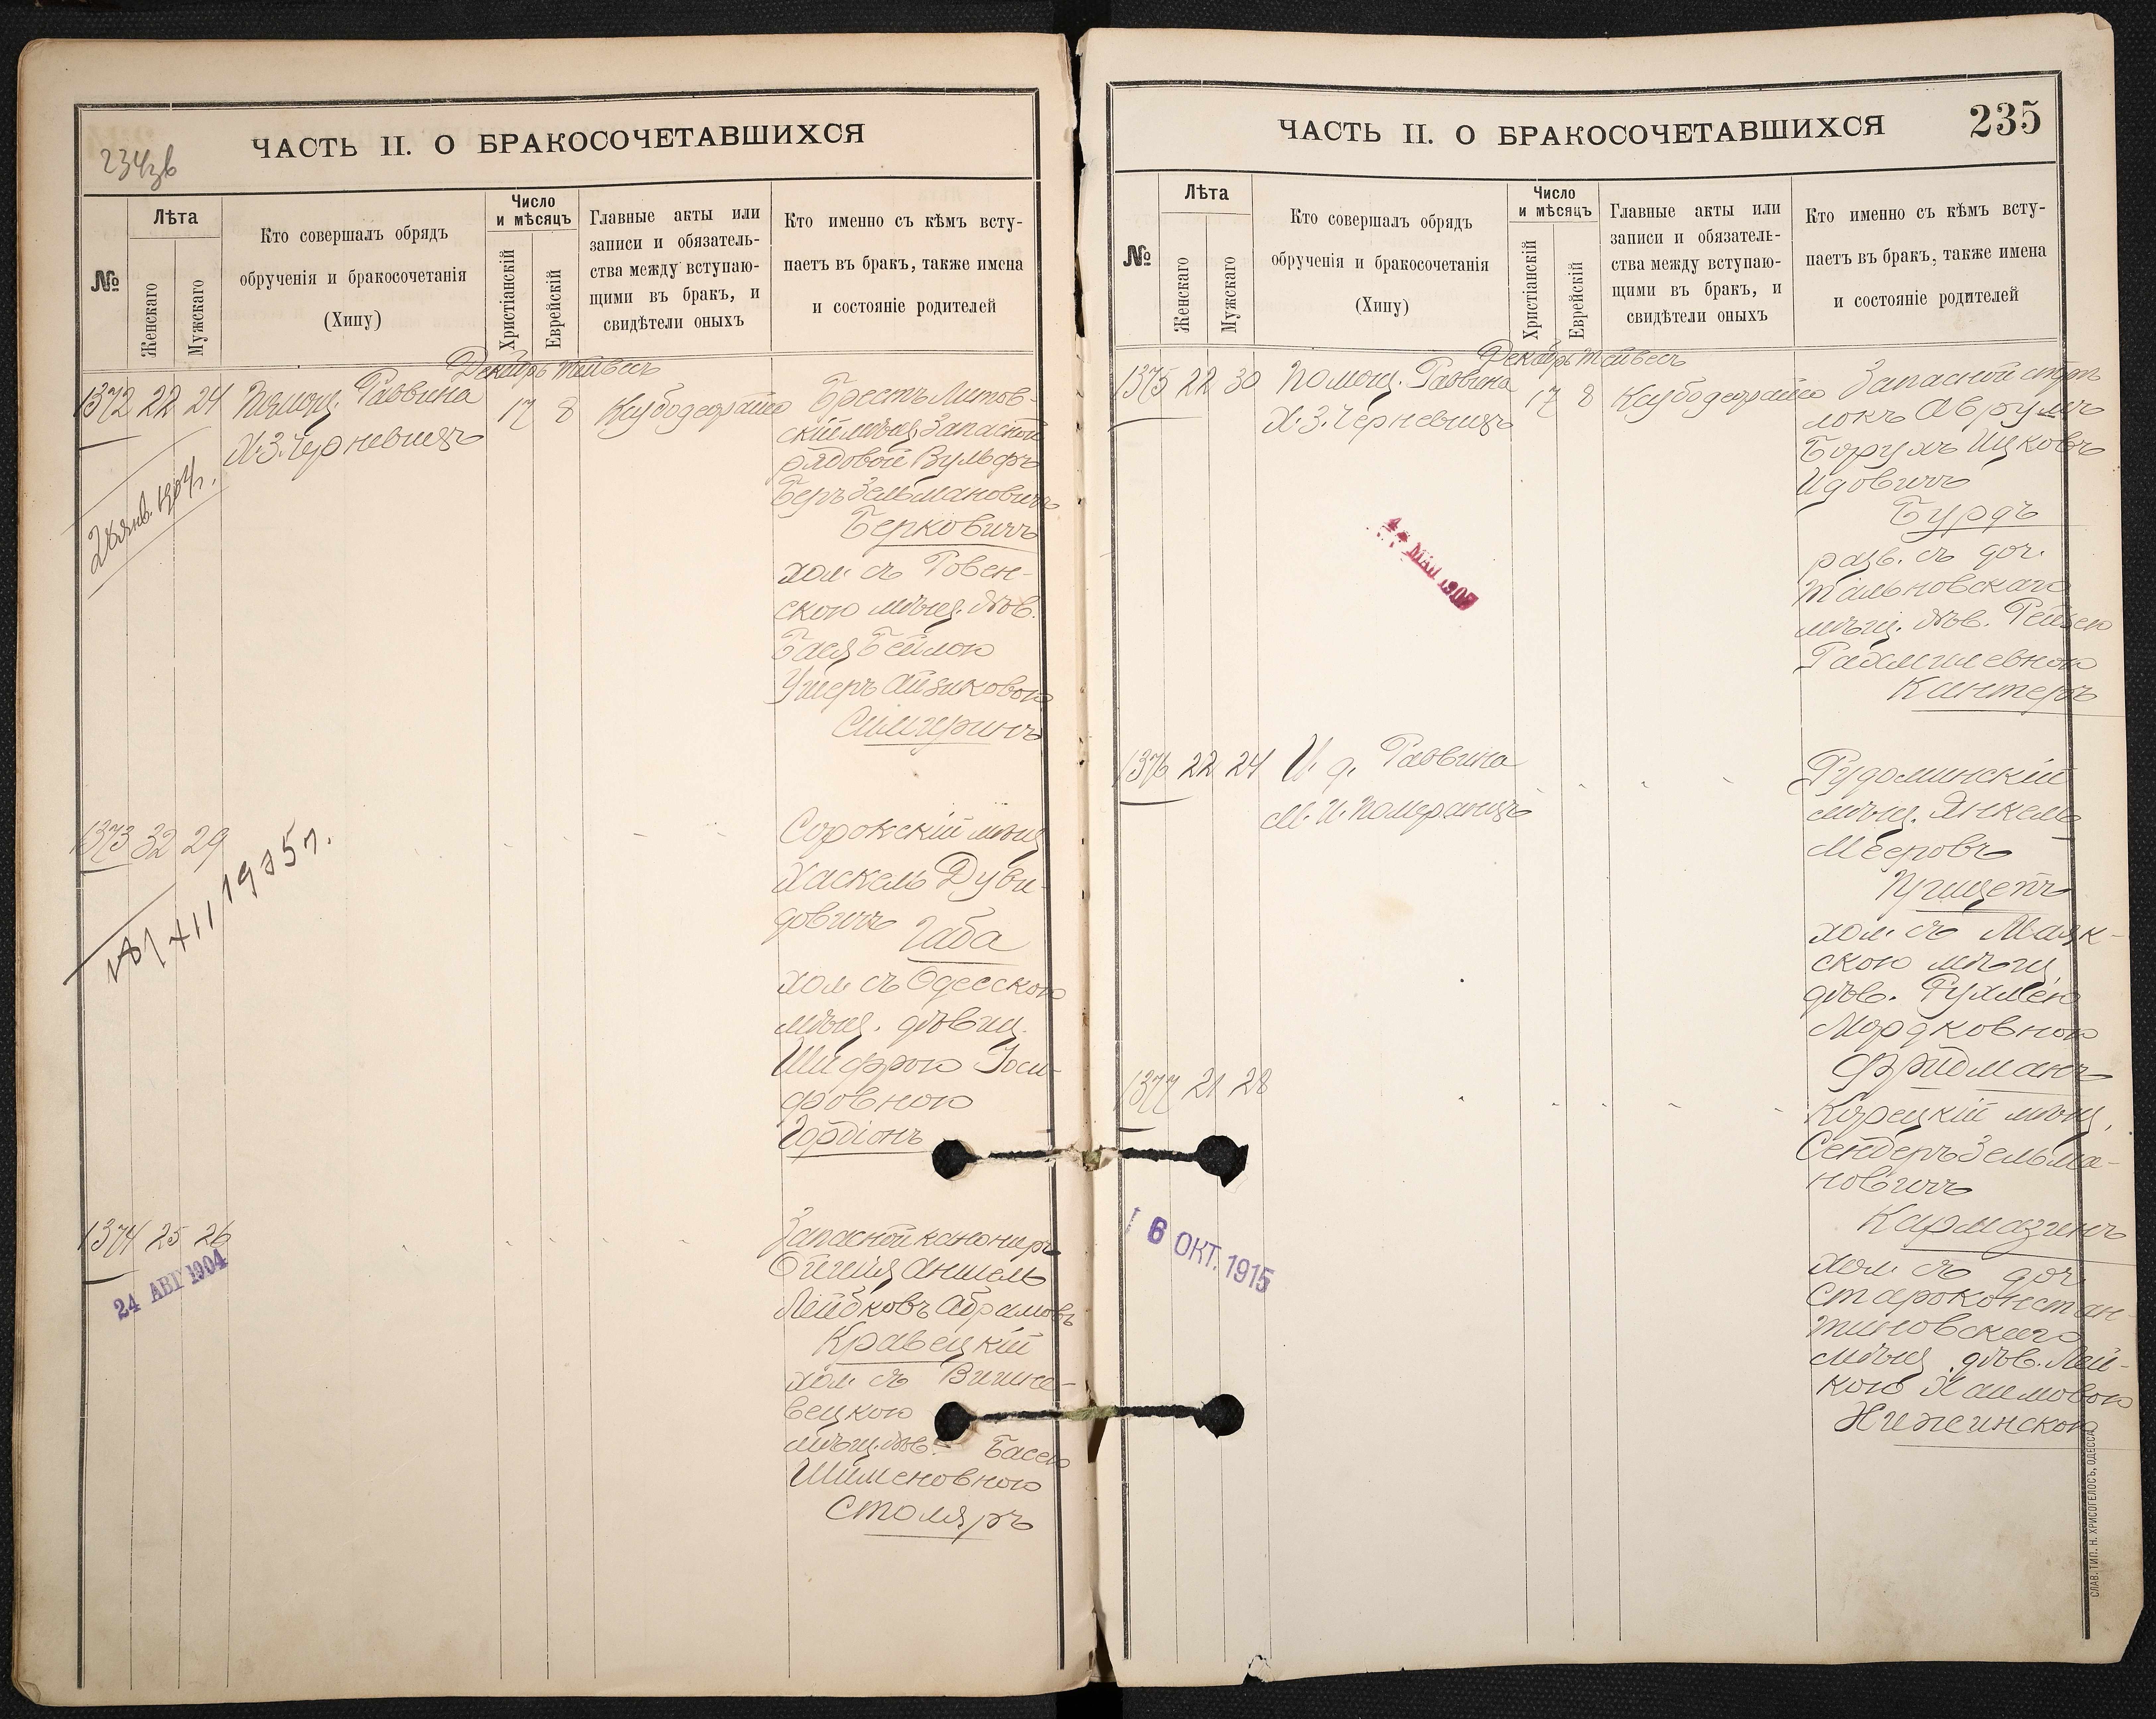 234зв
ЧАСТЬ II. О БРАКОСОЧЕТАВШИХСЯ
№
Лѣта
Женскаго
Мужскаго
Кто совершалъ обрядъ
обрученія и бракосочетанія
(Хипу)
Число
и мѣсяцъ
Христіанскій
Еврейскій
Главные акты или
записи и обязатель-
ства между вступаю-
щими въ бракъ, и
свидѣтели оныхъ
Кто именно съ кѣмъ всту-
паетъ въ бракъ, также имена
и состояніе родителей
Декабрь Тейвесъ
1372 22 24 Помощ. Раввина
Х.З. Черневицъ
17 8
28 янв. 1904 г.
Брестъ Литов-
скій мѣщ. Запасной
рядовой Вульфъ
Беръ Зельмановичъ
Берковичъ
хол. съ Ровен-
скою мѣщ. дѣв.
Бася Бейлою
Ушеръ Айзиковою
1373 32 29
XII 1905 г.
Сорокскій мѣщ
Хаскель Дуви-
довичъ Габа
хол съ Одесскою
мѣщ. дѣвиц.
Шифрою Іоси-
фовною
Гордіонъ
1374 25 26
24 АВГ 1904
Запасной канониръ
Аншель
Лейбковъ Абрамовъ
Кравецкій
хол. съ Вишне-
вецкою
мѣщ. дѣв. Басею
Шименовною
Столяръ
ЧАСТЬ II. О БРАКОСОЧЕТАВШИХСЯ
235
№
Лѣта
Женскаго
Мужскаго
Кто совершалъ обрядъ
обрученія и бракосочетанія
(Хипу)
Число
и мѣсяцъ
Христіанскій
Еврейскій
Главные акты или
записи и обязатель-
ства между вступаю-
щими въ бракъ, и
свидѣтели оныхъ
Кто именно съ кѣмъ всту-
паетъ въ бракъ, также имена
и состояніе родителей
Декабрь Тейвесъ
1375 22 30 Помощ. Раввина
Х.З. Черневицъ
17 8
МАЙ 1907
Запасной стрѣ-
локъ Аврумъ
Борухъ Ицковъ
Идовичъ
Бурдъ
разв. съ доч.
Тальновскаго
мѣщ. дѣв. Рейзею
Рахмилевною
Кинтеръ
1376 22 24 И. д. Раввина
М. И. Померанцъ
Рудоминскій
мѣщ. Янкель
Мееровъ
Прицепъ
хол. съ Маяк-
скою мѣщ.
дѣв. Рухлею
Мордковною
Фридманъ
1377 21 28
6 ОКТ. 1915
Корецкій мѣщ.
Сендеръ Зельма-
новичъ
Кармазинъ
хол. съ доч.
Староконстан-
тиновскаго
мѣщ. дѣв. Лей-
кою Хаимовою
Нижинскою
СЛАВ. ТИП. Н. ХРИСОГЕЛОСЪ, ОДЕССА